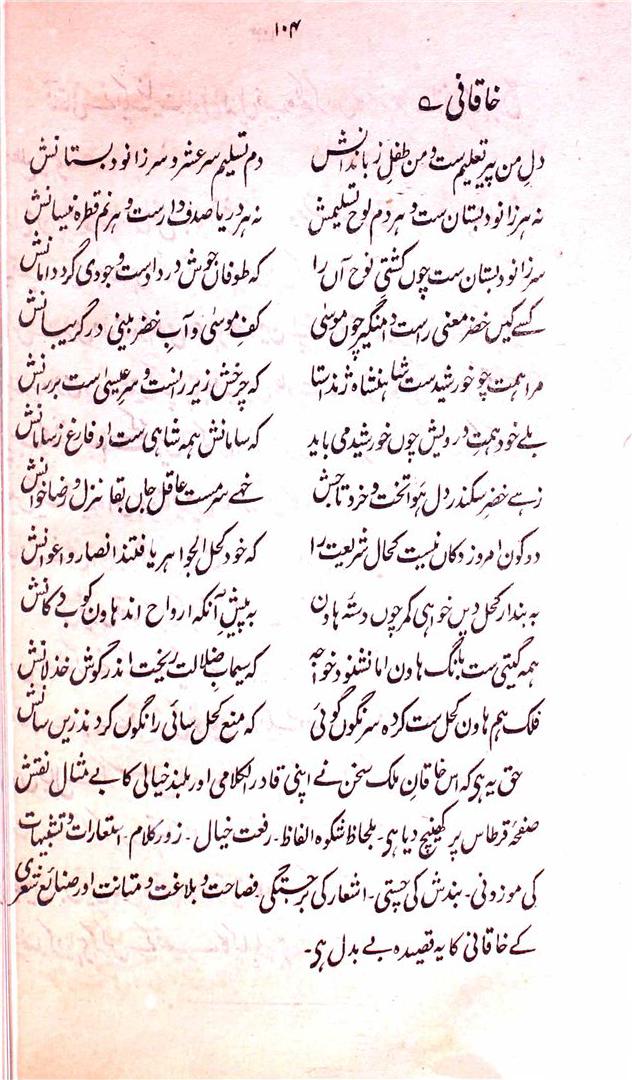 ۱۰۴
خاقانی ے
دلِ من پیر تعلیم ست و من طفلِ زباندانش دم تسلیم سر عشر و سر زانو دبستانش
نہ ہر زانو دبستان ست و ہر دم لوح تسلیمش نہ ہر دریا صدف دار ست و ہر نم قطرہ نیسانش
سر زانو دبستان ست چوں کشتی نوح آں را کہ طوفان جوش درد اوست و جودی گرد دامانش
کسے کیں خضر معنی راست دامنگیر چوں موسیٰ کفِ موسیٰ و آبِ خضر بینی در گریبانش
مرا ہمت چو خورشید ست شاہنشاہ ژند استا کہ چرخش زیر رانست و سر عیسیٰ است بر رانش
بلے خود ہمتِ درویش چوں خورشید می باید کہ سامانش ہمہ شاہی ست او فارغ ز سامانش
زہے خضرِ سکندر دل ہوا تخت و خرد تاجش خہے سرمست عاقل جاں بقا نزل و رضا خوانش
دو کون امروز دکان نیست کحال شریعت را کہ خود کحل الجواہر یافتند انصار و اعوانش
بہ بندار کحل دیں خواہی کمر چوں دستہ ہاون بہ پیشِ آنکہ ارواح اند ہاون کوب دکانش
ہمہ گیتی ست بانگ ہاون اما نشنود خواجہ کہ سیماب ضلالت ریخت اندر گوش خذلانش
فلک ہم ہاون کحل ست کردہ سرنگوں گوئی کہ منع کحل سائی را نگوں کردند زیں سانش
حق یہ ہی کہ اس خاقانِ ملک سخن نے اپنی قادر الکلامی اور بلند خیالی کا بے مثال نقش
صفحۂ قرطاس پر کھینچ دیا ہی۔ بلحاظ شکوہ الفاظ۔ رفعت خیال۔ زور کلام۔ استعارات و تشبیہات
کی موزونی۔ بندش کی چستی۔ اشعار کی برجستگی۔ فصاحت و بلاغت و متانت اور صنائع شعری
کے خاقانی کا یہ قصیدہ بے بدل ہی۔